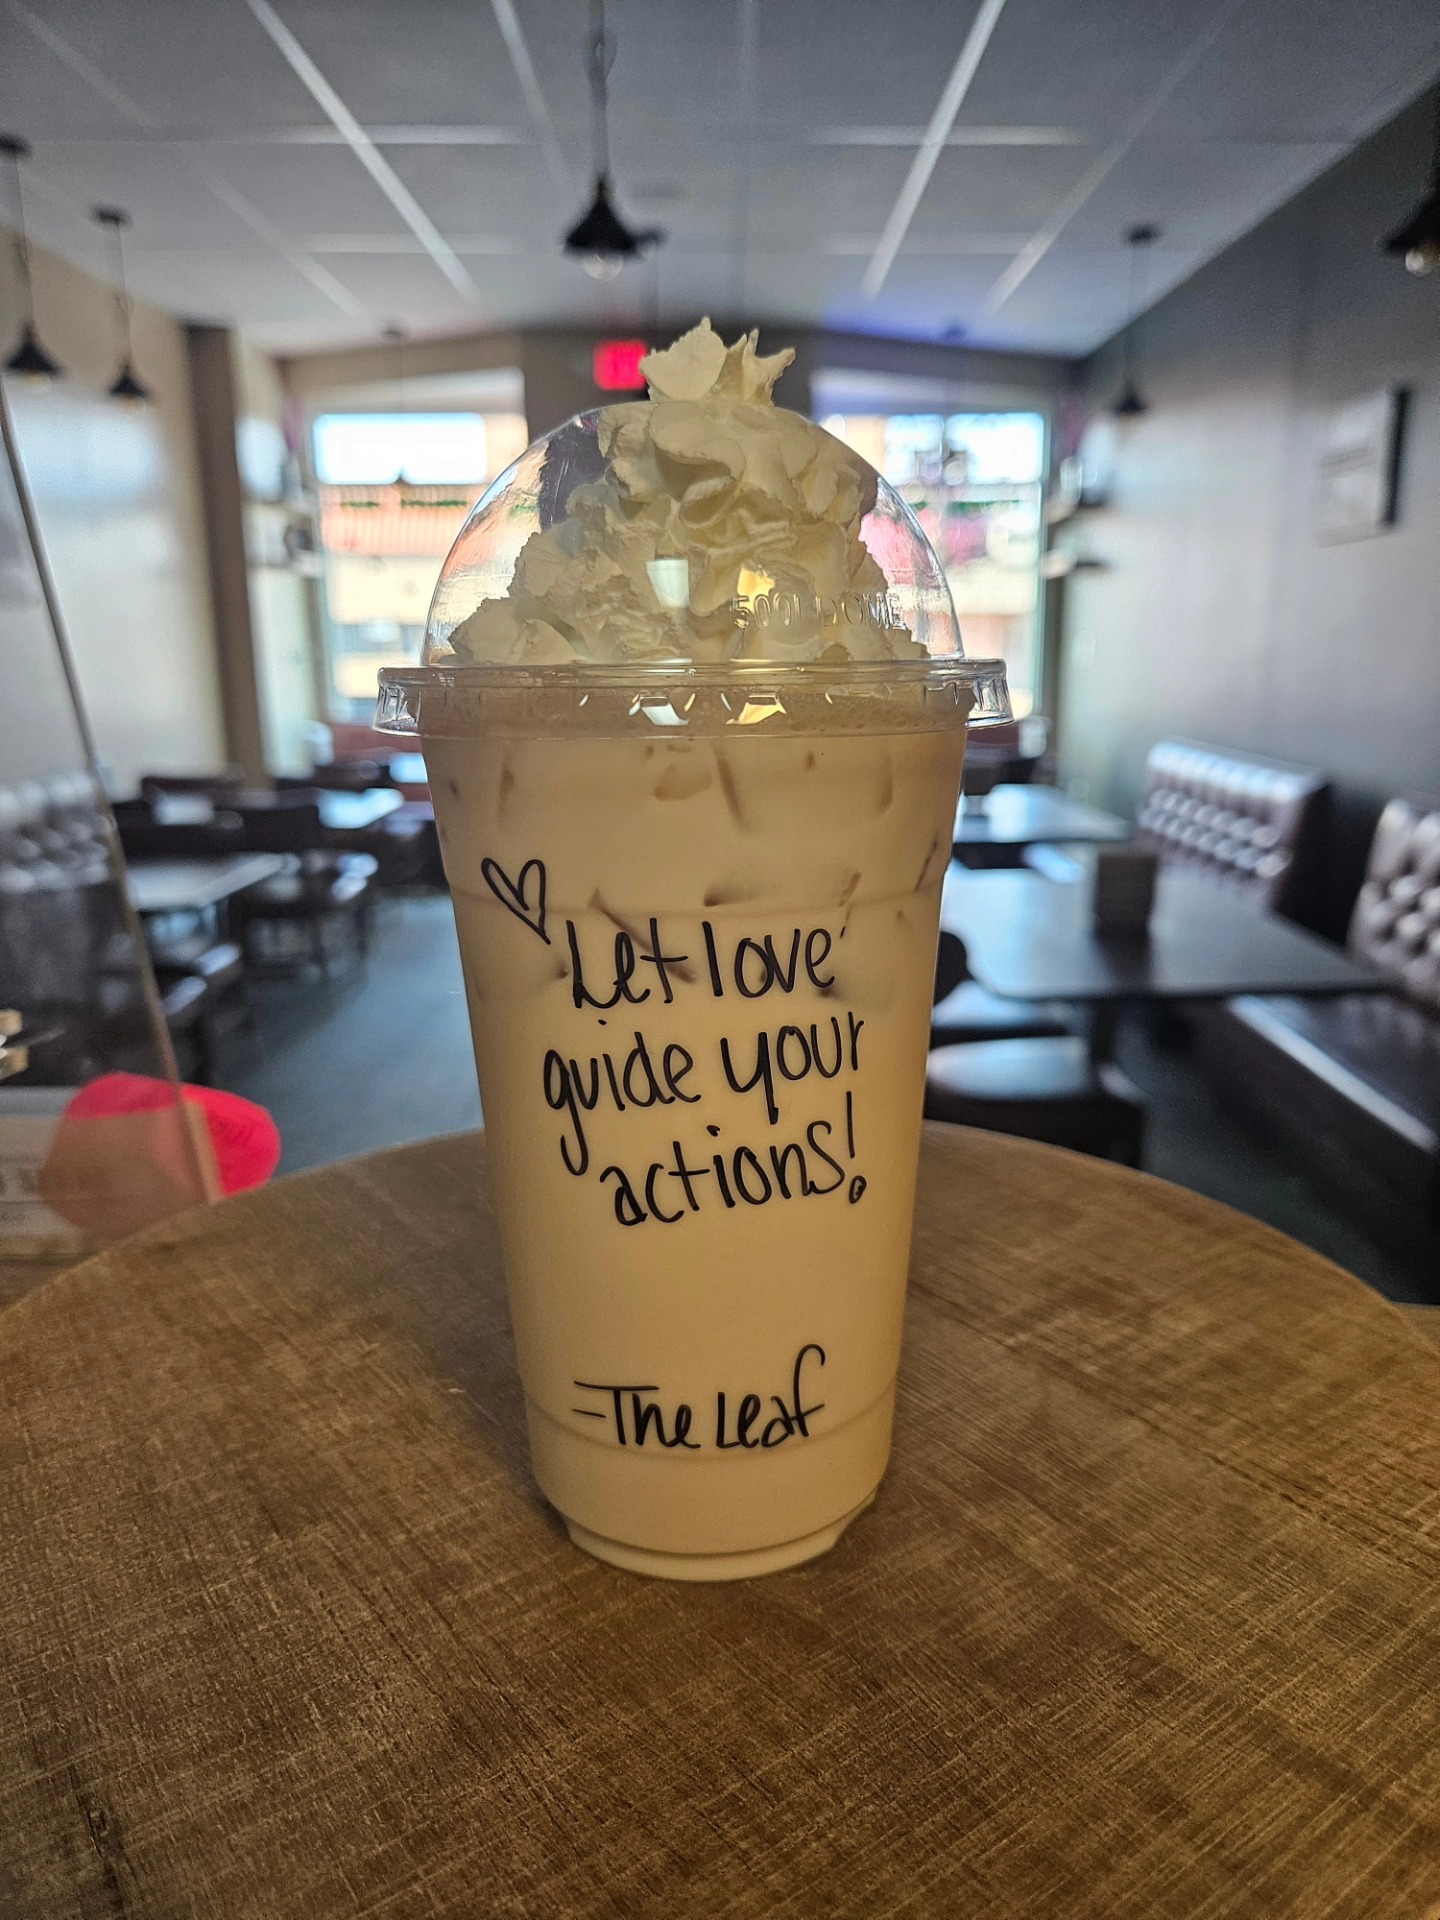 500LDOME
Let love
guide your
actions!
-The Leaf